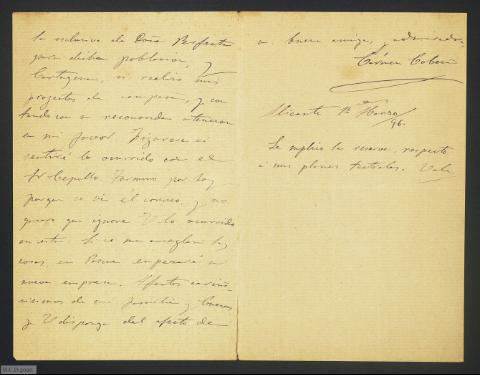 la exclusiva de Doña Perfecta
para dichas poblacion, y
Cartagena, si realizo mis
proyectos de campaña, y con
tando con su reconocida atencion
en mi favor. Figurese si
sentiré lo ocurrido con el
Sr Cepillo. Termino por hoy
porque se vá el correo, y no
quiero que ignore V lo ocurrido
en esto. Si se me arreglan las
cosas, en Pascua empezaré
nueva empresa. Afectos cariño-
sisimos de mi familia y
y V disponga del afecto de
su buena amiga, y admiradora,
Cármen Cobeña
Alicante 12 Marzo
/96.
Le suplico la reserva, respecto
á mis planes teatrales. Vale